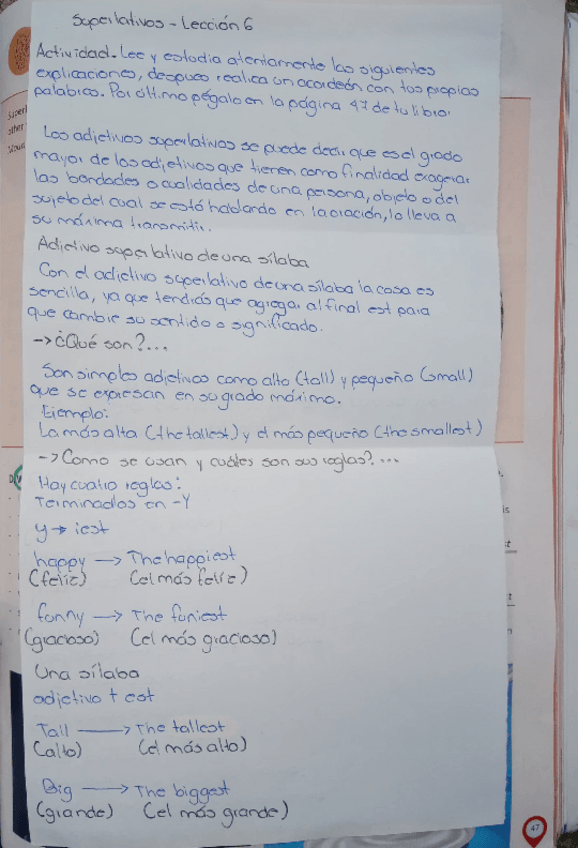 Superlativos - Lección 6
Actividad. Lee y estudia atentamente las siguientes
explicaciones, despues realica un acordeón con tus propias
palabras. Por último pégalo en la página 47 de tu libro.
Los adjetivos superlativos se puede decir que es el grado
mayor de los adjetivos que tienen como finalidad exagerar
las bondades o cualidades de una persona, objeto o del
sujeto del cual se está hablando en la oración, lo lleva a
su máxima transmitir.
Adjetivo superlativo de una sílaba
Con el adjetivo superlativo de una sílaba la cosa es
sencilla, ya que tendrás que agregar al final est para
que cambie su sentido o significado.
-> ¿Qué son?...
Son simples adjetivos como alto (tall) y pequeño (small)
que se expresan en su grado máximo.
Ejemplo:
La más alta (the tallest) y el más pequeño (the smallest)
-> Como se usan y cuáles son sus reglas?...
Hay cuatro reglas:
Terminados en -Y
y → iest
happy → The happiest
(feliz) (el más feliz)
funny → The funiest
(gracioso) (el más gracioso)
Una sílaba
adjetivo + est
Tall → The tallest
(alto) (el más alto)
Big → The biggest
(grande) (el más grande)
47